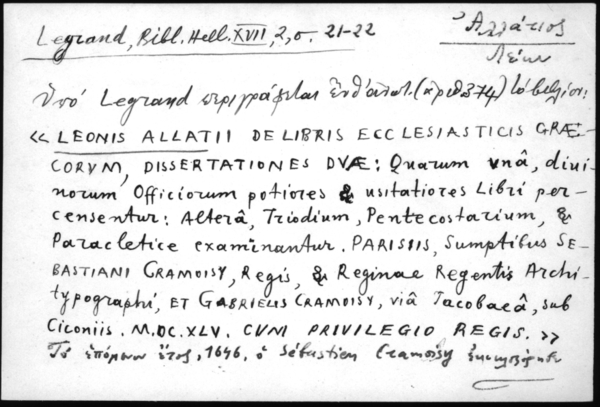 Legrand, Bibl. Hell. XVII, 2, σ. 21-22
Ἀλλάτιος
Λέων
Ὑπό Legrand περιγράφεται (ἀριθ 374) τό βιβλίον:
« LEONIS ALLATII DE LIBRIS ECCLESIASTICIS GRÆ-
CORVM, DISSERTATIONES DVÆ: Quarum vnâ, divi-
norum Officiorum potiores & usitatiores Libri per-
censentur: Alterâ, Triodium, Pentecostarium, &
Paracletice examinantur. PARISIIS, Sumptibus SE-
BASTIANI CRAMOISY, Regis, & Reginae Regentis Archi-
typographi, ET GABRIELIS CRAMOISY, viâ Iacobaeâ, sub
Ciconiis. M.DC.XLV. CVM PRIVILEGIO REGIS. »
Τό ἑπόμενον ἔτος, 1646, ὁ Sébastien Cramoisy